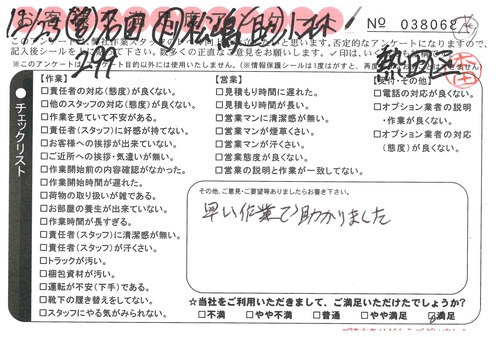 No 038068
記入後シールに
※このアンケートはアンケート目的以外には使用いたしません。(※情報保護シールは1度はがすと、再度
熱田区
299
チェックリスト
【作業】
□責任者の対応(態度)が良くない。
□他のスタッフの対応(態度)が良くない。
□作業を見ていて不安がある。
□責任者(スタッフ)に好感が持てない。
□お客様への挨拶が出来ていない。
□ご近所への挨拶・気遣いが無い。
□作業開始前の内容確認がなかった。
□作業開始時間が遅れた。
□荷物の取り扱いが雑である。
□お部屋の養生が出来ていない。
□作業時間が長すぎる。
□責任者(スタッフ)に清潔感が無い。
□責任者(スタッフ)が汗くさい。
□トラックが汚い。
□梱包資材が汚い。
□運転が不安(下手)である。
□靴下の履き替えをしてない。
□スタッフにやる気がみられない。
【営業】
□見積もり時間に遅れた。
□見積もり時間が長い。
□営業マンに清潔感が無い。
□営業マンが煙草くさい。
□営業マンが汗くさい。
□営業態度が良くない。
□営業の説明と作業が一致してない。
【受付・その他】
□電話の対応が良くない。
□オプション業者の説明・作業が良くない。
□オプション業者の対応(態度)が良くない。
その他、ご意見・ご要望等ありましたらお書き下さい。
早い作業で助かりました
☆当社をご利用いただきまして、ご満足いただけたでしょうか？
□不満 □やや不満 □普通 □やや満足 □満足